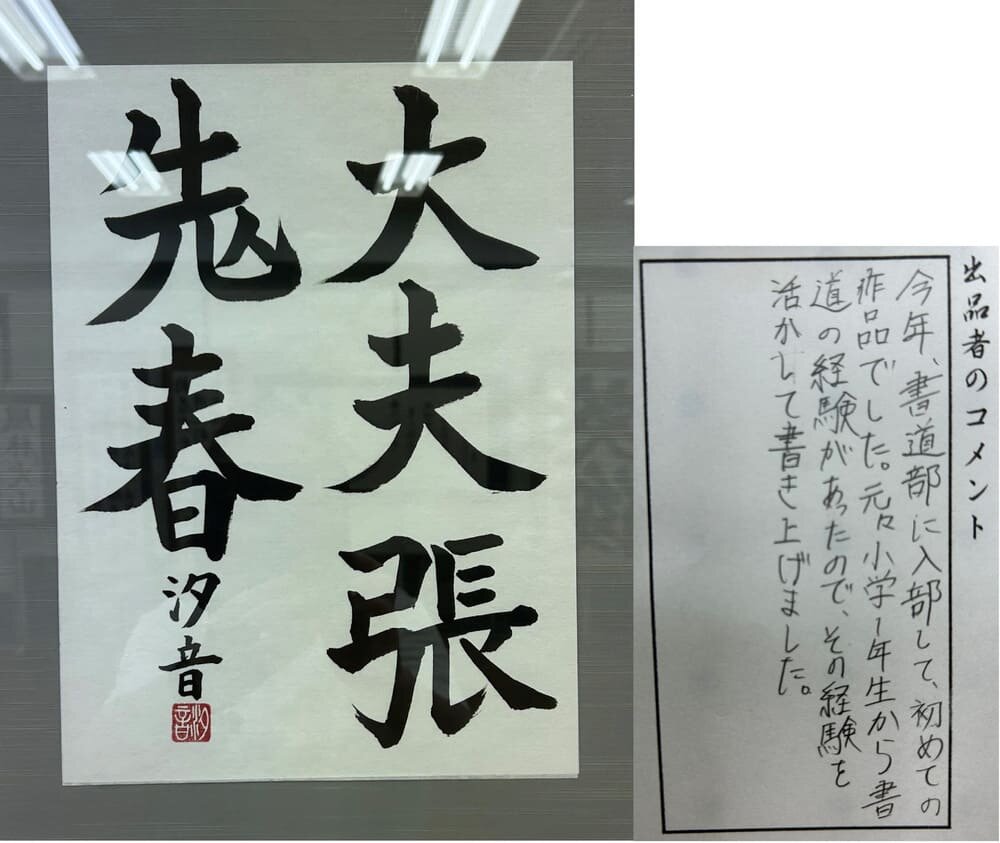 大夫張
先春
汐音
汐音
出品者のコメント
今年、書道部に入部して、初めての
作品でした。元々小学1年生から書
道の経験があったので、その経験を
活かして書き上げました。